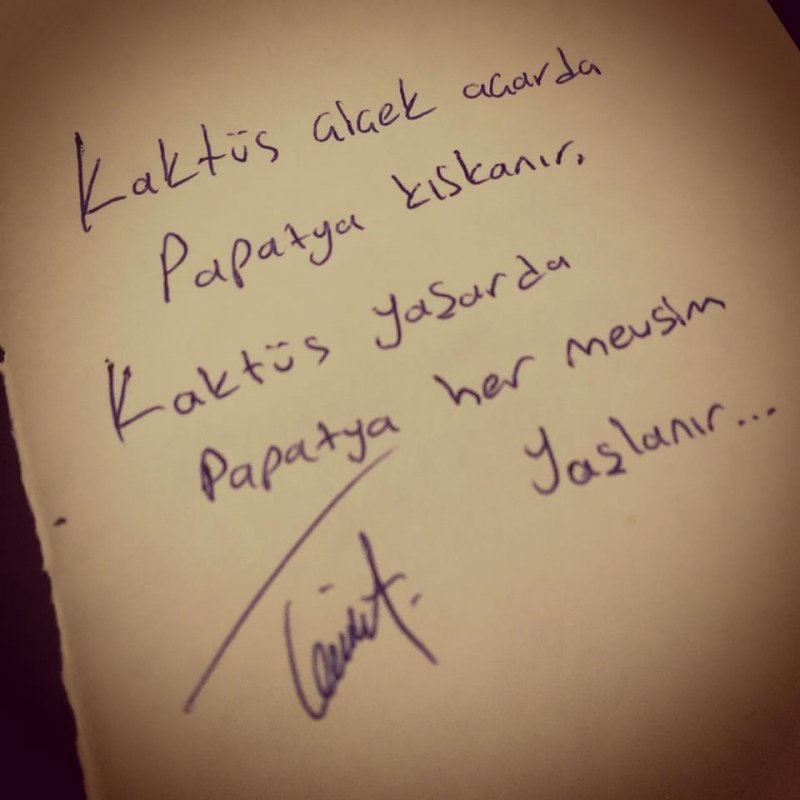 Kaktüs çiçek açarda
Papatya kıskanır,
Kaktüs yaşarda
Papatya her mevsim
Yaşlanır...